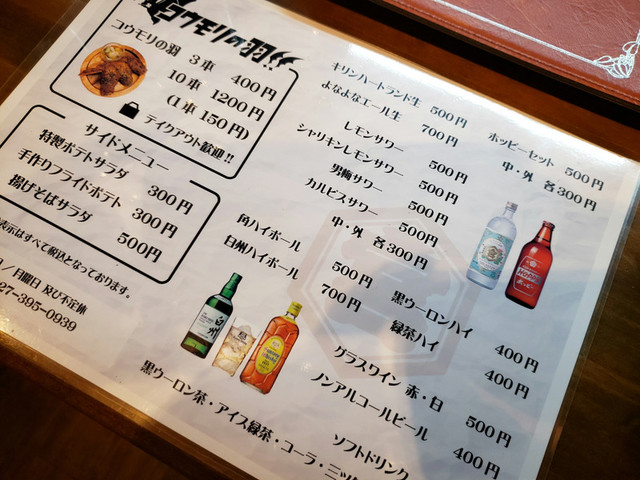 コウモリの羽!!
コウモリの羽 3本 400円
10本 1200円
(1本 150円)
テイクアウト歓迎!!
サイドメニュー
特製ポテトサラダ 300円
手作りフライドポテト 300円
揚げそばサラダ 500円
表示はすべて税込となっております。
日/月曜日 及び不定休
27-395-0939
キリンハートランド生 500円
よなよなエール生 700円
レモンサワー 500円
シャリキンレモンサワー 500円
男梅サワー 500円
カルピスサワー 500円
ホッピーセット 500円
中・外 各300円
中・外 各300円
角ハイボール 500円
白州ハイボール 700円
白州
黒ウーロンハイ 400円
緑茶ハイ 400円
グラスワイン 赤・白 500円
ノンアルコールビール 400円
ソフトドリンク
黒ウーロン茶・アイス緑茶・コーラ・ニッ